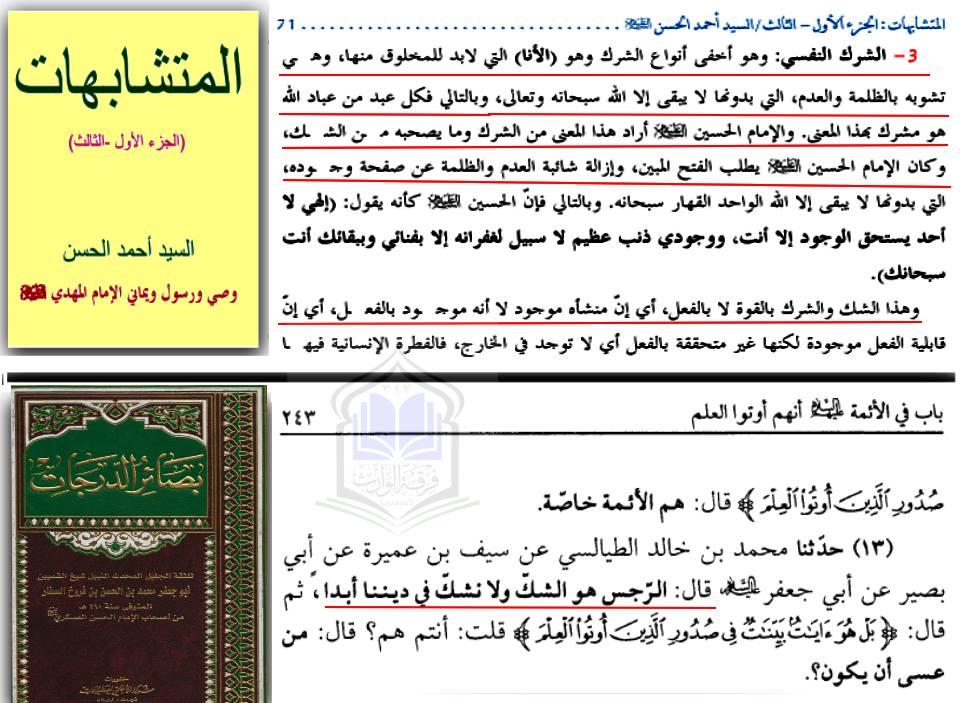 المتشابهات
(الجزء الأول -الثالث)
السيد أحمد الحسن
وصي ورسول ويماني الإمام المهدي
المتشابهات: الجزء الأول – الثالث/السيد أحمد الحسن ........................................ 71
3– الشرك النفسي: وهو أخفى أنواع الشرك وهو (الأنا) التي لابد للمخلوق منها، وهـي
تشوبه بالظلمة والعدم، التي بدونها لا يبقى إلا الله سبحانه وتعالى، وبالتالي فكل عبد من عباد الله
هو مشرك بهذا المعنى. والإمام الحسين أراد هذا المعنى من الشرك وما يصحبه مـن الشـك،
وكان الإمام الحسين يطلب الفتح المبين، وإزالة شائبة العدم والظلمة عن صفحة وجـوده،
التي بدونها لا يبقى إلا الله الواحد القهار سبحانه. وبالتالي فإنّ الحسين كأنه يقول: (إلهي لا
أحد يستحق الوجود إلا أنت، ووجودي ذنب عظيم لا سبيل لغفرانه إلا بفنائي وببقائك أنت
سبحانك).
وهذا الشك والشرك بالقوة لا بالفعل، أي إنّ منشأه موجود لا أنه موجـود بالفعـل، أي إنّ
قابلية الفعل موجودة لكنها غير متحققة بالفعل أي لا توجد في الخارج، فالفطرة الإنسانية فيهـا
بصائر الدرجات
للثقة الجليل المحدث النبيل شيخ القميين
أبو جعفر محمد بن الحسن بن فروخ الصفار
المتوفى سنة ٢٩٠ هـ
من أصحاب الإمام الحسن العسكري
باب في الأئمة أنهم أوتوا العلم ٢٤٣
صُدُورِ الَّذِينَ أُوتُوا الْعِلْمَ﴾ قال: هم الأئمة خاصّة.
(١٣) حدّثنا محمد بن خالد الطيالسي عن سيف بن عميرة عن أبي
بصير عن أبي جعفر قال: الرّجس هو الشكّ ولا نشكّ في ديننا أبدا، ثم
قال: ﴿بَلْ هُوَ آيَاتٌ بَيِّنَاتٌ فِي صُدُورِ الَّذِينَ أُوتُوا الْعِلْمَ﴾ قلت: أنتم هم؟ قال: من
عسى أن يكون؟.